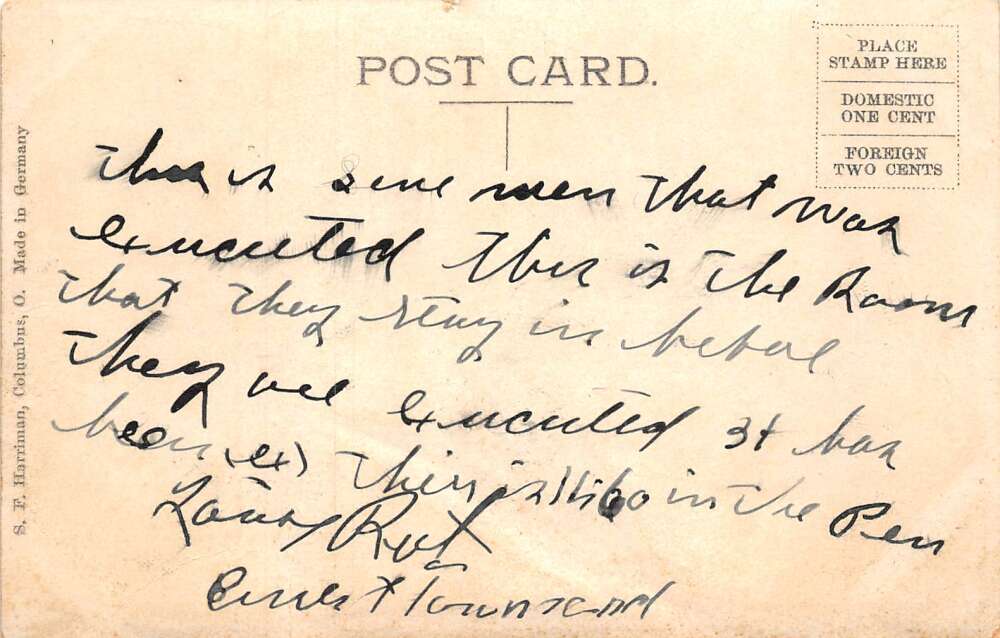 POST CARD.
PLACE
STAMP HERE
DOMESTIC
ONE CENT
FOREIGN
TWO CENTS
S. F. Harriman, Columbus, O. Made in Germany
this is some men that was
excuted This is The Room
that They stay in before
They are excuted 34 has
been (ex) This is in the Pen
Ernest Townsend